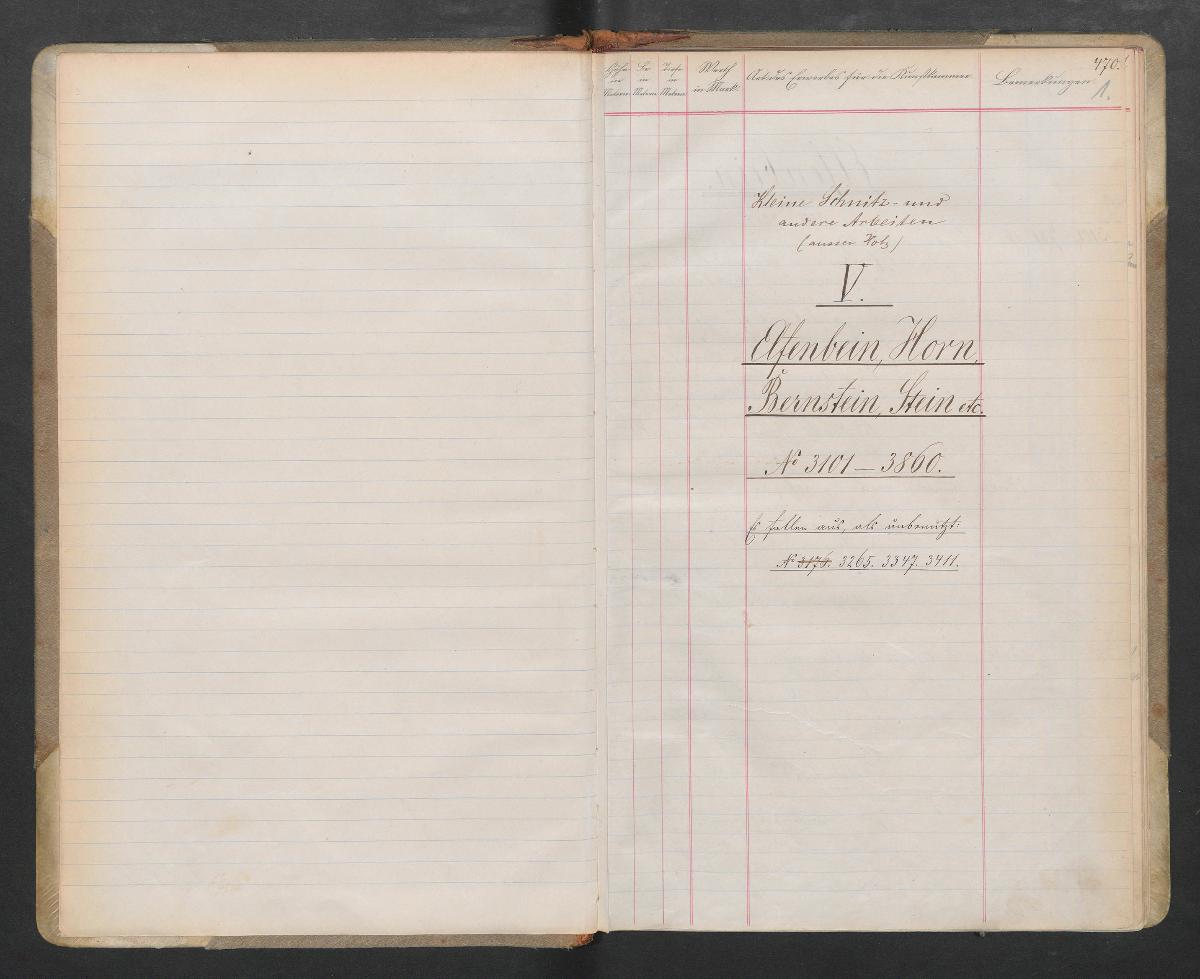 470.
1.
Höhe in Metern
Br. in Metern
Tiefe in Metern
Werth in Mark.
Art des Erwerbes für die Kunstkammer
Bemerkungen
Kleine Schnitz- und
andere Arbeiten
(ausser Holz)
V.
Elfenbein, Horn,
Bernstein, Stein etc.
No 3101 — 3860.
Es fallen aus, als unbenützt:
No 3176. 3265. 3347. 3411.